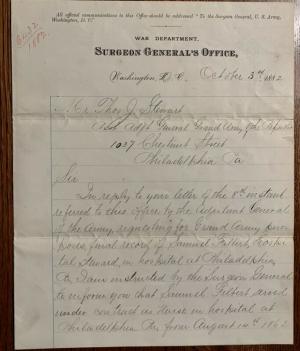 All official communications to this Office should be addressed "To the Surgeon General, U. S. Army,
Washington, D. C."
WAR DEPARTMENT,
SURGEON GENERAL'S OFFICE,
Washington, D. C., October 3rd 1882
Mr Thos J. Stewart
Asst Adjt General Grand Army of the Republic
1037 Chestnut Street
Philadelphia Pa
Sir
In reply to your letter of the 8th instant
referred to this office by the Adjutant General
of the Army, requesting for Grand Army pur
poses final record of Samuel Filbert, Hospi
tal Steward, in hospital at Philadelphia,
Pa I am instructed by the Surgeon General
to inform you that Samuel Filbert served
under contract as Nurse in hospital at
Philadelphia Pa from August 14th 1862